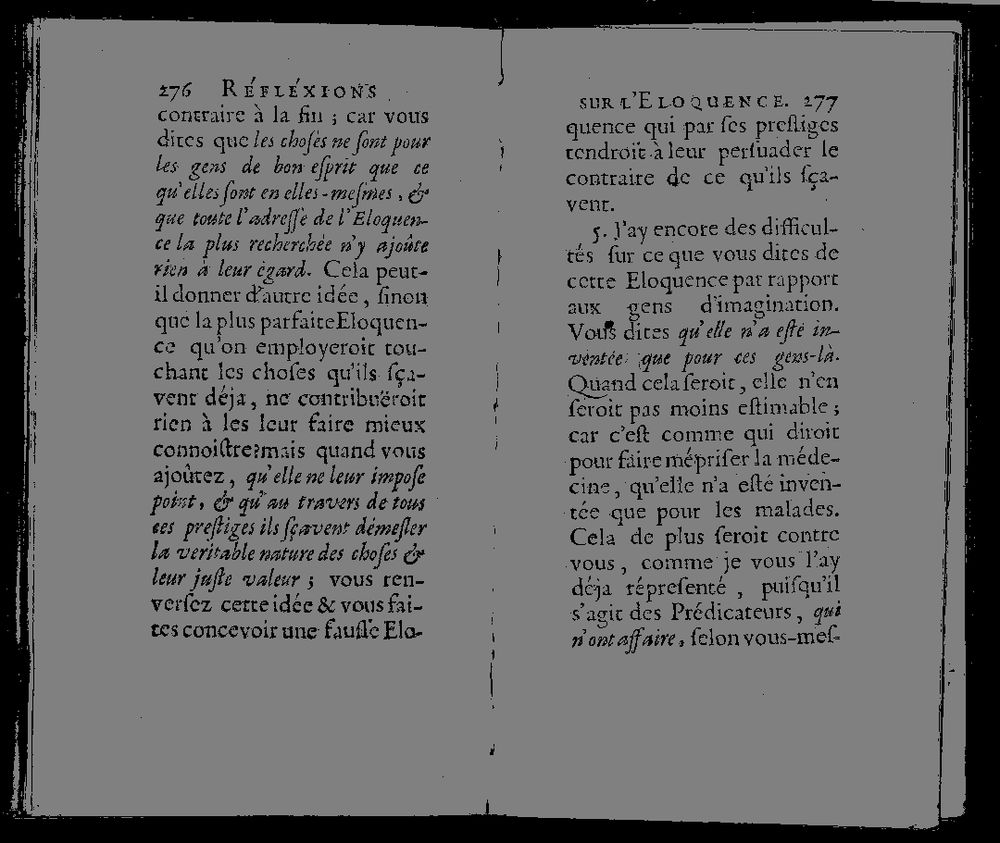 276 RÉFLÉXIONS
contraire à la fin ; car vous
dites que les choſes ne ſont pour
les gens de bon eſprit que ce
qu'elles ſont en elles-meſmes, &
que toute l'adreſſe de l'Eloquen-
ce la plus recherchée n'y ajoûte
rien à leur égard. Cela peut-
il donner d'autre idée, ſinon
que la plus parfaite Eloquen-
ce qu'on employeroit tou-
chant les choſes qu'ils ſça-
vent déja, ne contribuëroit
rien à les leur faire mieux
connoiſtre ? mais quand vous
ajoûtez, qu'elle ne leur impoſe
point, & qu'au travers de tous
ces preſtiges ils ſçavent démeſler
la veritable nature des choſes &
leur juſte valeur ; vous ren-
verſez cette idée & vous fai-
tes concevoir une fauſſe Elo-
SUR L'ELOQUENCE. 277
quence qui par ſes preſtiges
tendroit à leur perſuader le
contraire de ce qu'ils ſça-
vent.
5. J'ay encore des difficul-
tés ſur ce que vous dites de
cette Eloquence par rapport
aux gens d'imagination.
Vous dites qu'elle n'a eſté in-
ventée que pour ces gens-là.
Quand cela ſeroit, elle n'en
ſeroit pas moins eſtimable ;
car c'eſt comme qui diroit
pour faire mépriſer la méde-
cine, qu'elle n'a eſté inven-
tée que pour les malades.
Cela de plus ſeroit contre
vous, comme je vous l'ay
déja répreſenté, puiſqu'il
s'agit des Prédicateurs, qui
n'ont affaire, ſelon vous-meſ-